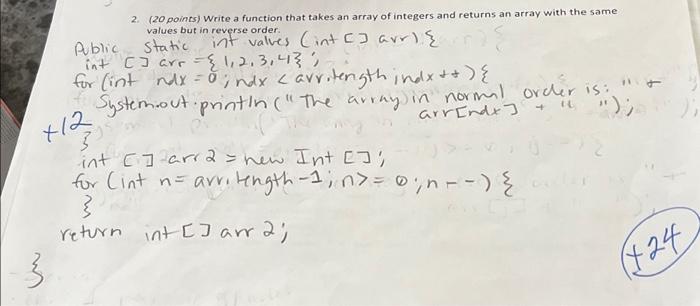 2. (20 points) Write a function that takes an array of integers and returns an array with the same
values but in reverse order.
Public static int values (int [] arr) {
int [] arr = {1,2,3,4};
for (int ndx = 0; ndx < arr.length; ndx++) {
System.out.println("The array in normal order is: " +
arr[ndx] + " ");
+12
}
int [] arr2 = new Int [];
for (int n = arr.length-1; n >= 0; n--) {
}
return int [] arr 2;
}
+24